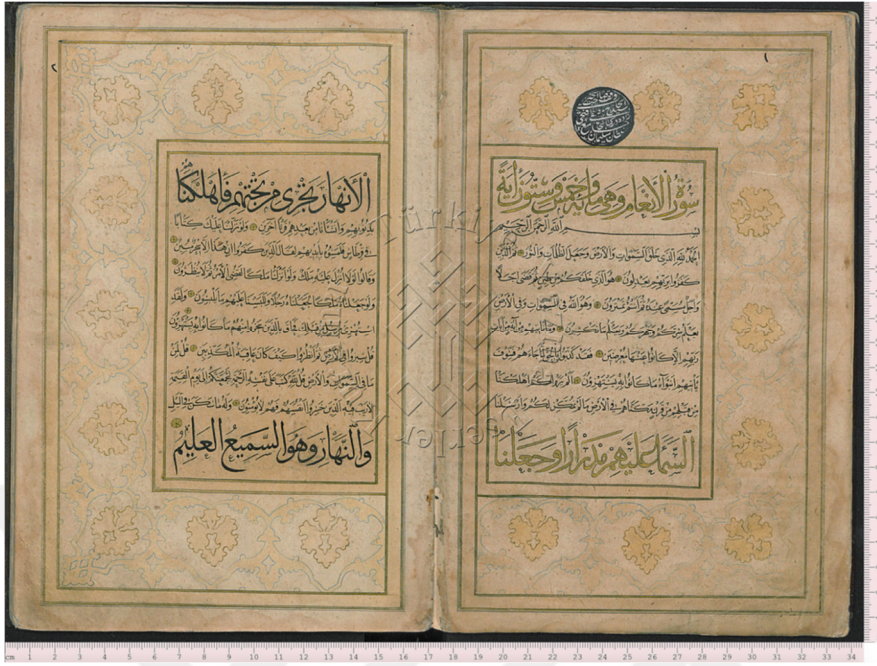 ١
سورة الأنعام وهي مائة وخمس وستون آية
بسم الله الرحمن الرحيم
الحمد لله الذي خلق السموات والأرض وجعل الظلمات والنور ثم الذين
كفروا بربهم يعدلون هو الذي خلقكم من طين ثم قضى أجلا
وأجل مسمى عنده ثم أنتم تمترون وهو الله في السموات وفي الأرض
يعلم سركم وجهركم ويعلم ما تكسبون وما تأتيهم من آية من آيات
ربهم إلا كانوا عنها معرضين فقد كذبوا بالحق لما جاءهم فسوف
يأتيهم أنبؤا ما كانوا به يستهزؤن ألم يروا كم أهلكنا
من قبلهم من قرن مكناهم في الأرض ما لم نمكن لكم وأرسلنا
السماء عليهم مدرارا وجعلنا
٢
الأنهار تجري من تحتهم فأهلكناهم
بذنوبهم وأنشأنا من بعدهم قرنا آخرين ولو نزلنا عليك كتابا
في قرطاس فلمسوه بأيديهم لقال الذين كفروا إن هذا إلا سحر مبين
وقالوا لولا أنزل عليه ملك ولو أنزلنا ملكا لقضي الأمر ثم لا ينظرون
ولو جعلناه ملكا لجعلناه رجلا وللبسنا عليهم ما يلبسون ولقد
استهزئ برسل من قبلك فحاق بالذين سخروا منهم ما كانوا به يستهزؤن
قل سيروا في الأرض ثم انظروا كيف كان عاقبة المكذبين قل لمن
ما في السموات والأرض قل لله كتب على نفسه الرحمة ليجمعنكم إلى يوم القيمة
لا ريب فيه الذين خسروا أنفسهم فهم لا يؤمنون وله ما سكن في الليل
والنهار وهو السميع العليم
cm 1 2 3 4 5 6 7 8 9 10 11 12 13 14 15 16 17 18 19 20 21 22 23 24 25 26 27 28 29 30 31 32 33 34